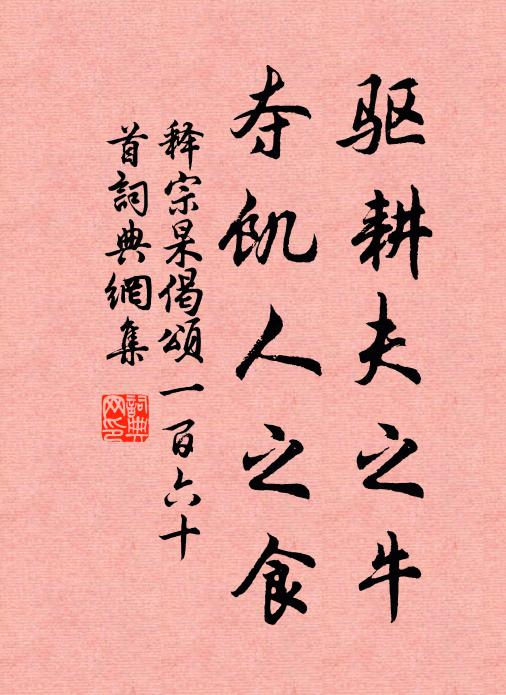 驱耕夫之牛
夺饥人之食
释宗杲偈頌一百六十
首詞典網集
詞典
网印